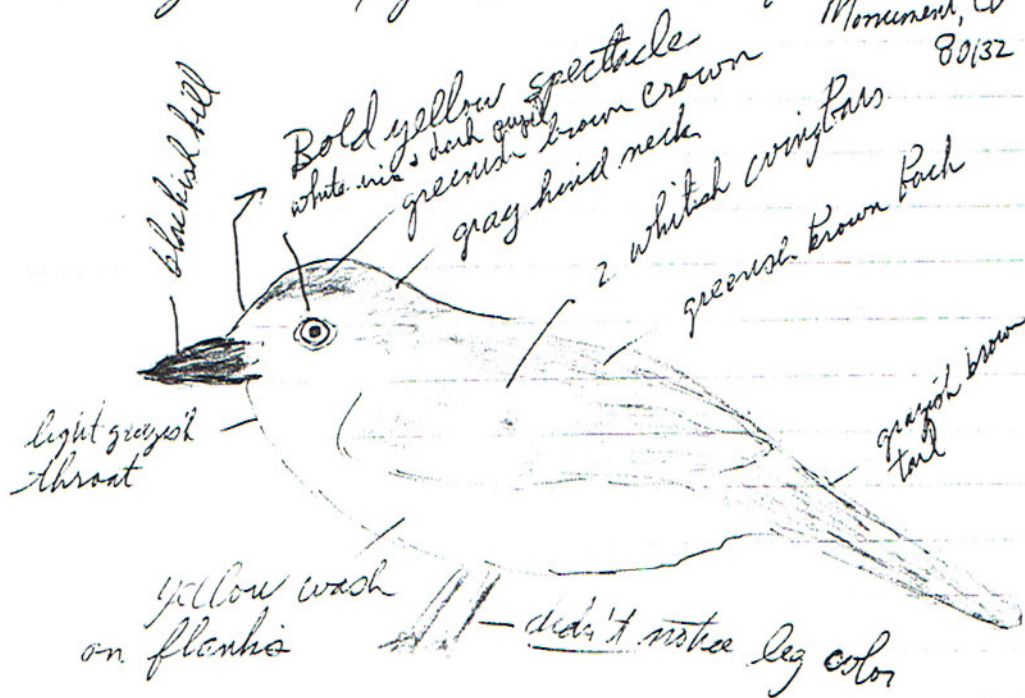 Monument, CO
80132
blackish bill
Bold yellow spectacle
white iris & dark pupil
greenish brown crown
gray hind neck
2 whitish wing bars
greenish brown back
grayish brown
tail
light grayish
throat
yellow wash
on flanks
didn't notice leg color